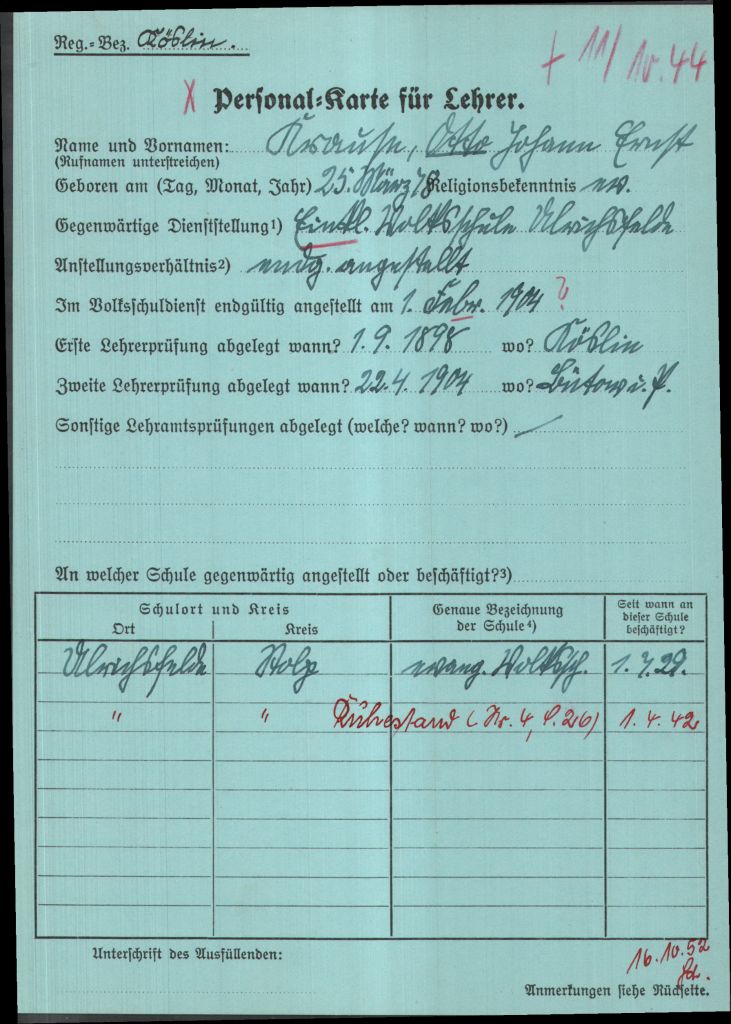 Reg.-Bez. Köslin.
+ 11/10.44
X Personal-Karte für Lehrer.
Name und Vornamen: Krause, Otto Johann Ernst
(Rufnamen unterstreichen)
Geboren am (Tag, Monat, Jahr) 25. März 78 Religionsbekenntnis ev.
Gegenwärtige Dienststellung1) Einkl. Volksschule Ulrichsfelde
Anstellungsverhältnis2) endg. angestellt
Im Volksschuldienst endgültig angestellt am 1. Febr. 1904 ?
Erste Lehrerprüfung abgelegt wann? 1.9. 1898 wo? Köslin
Zweite Lehrerprüfung abgelegt wann? 22.4. 1904 wo? Bütow i. P.
Sonstige Lehramtsprüfungen abgelegt (welche? wann? wo?) —
An welcher Schule gegenwärtig angestellt oder beschäftigt?3)
Schulort und Kreis Genaue Bezeichnung der Schule4) Seit wann an dieser Schule beschäftigt?
Ort Kreis
Ulrichsfelde Stolp evang. Volkssch. 1.7.29.
" " Ruhestand (Nr. 4, S. 26) 1.4.42
Unterschrift des Ausfüllenden:
16.10.52
Anmerkungen siehe Rückseite.